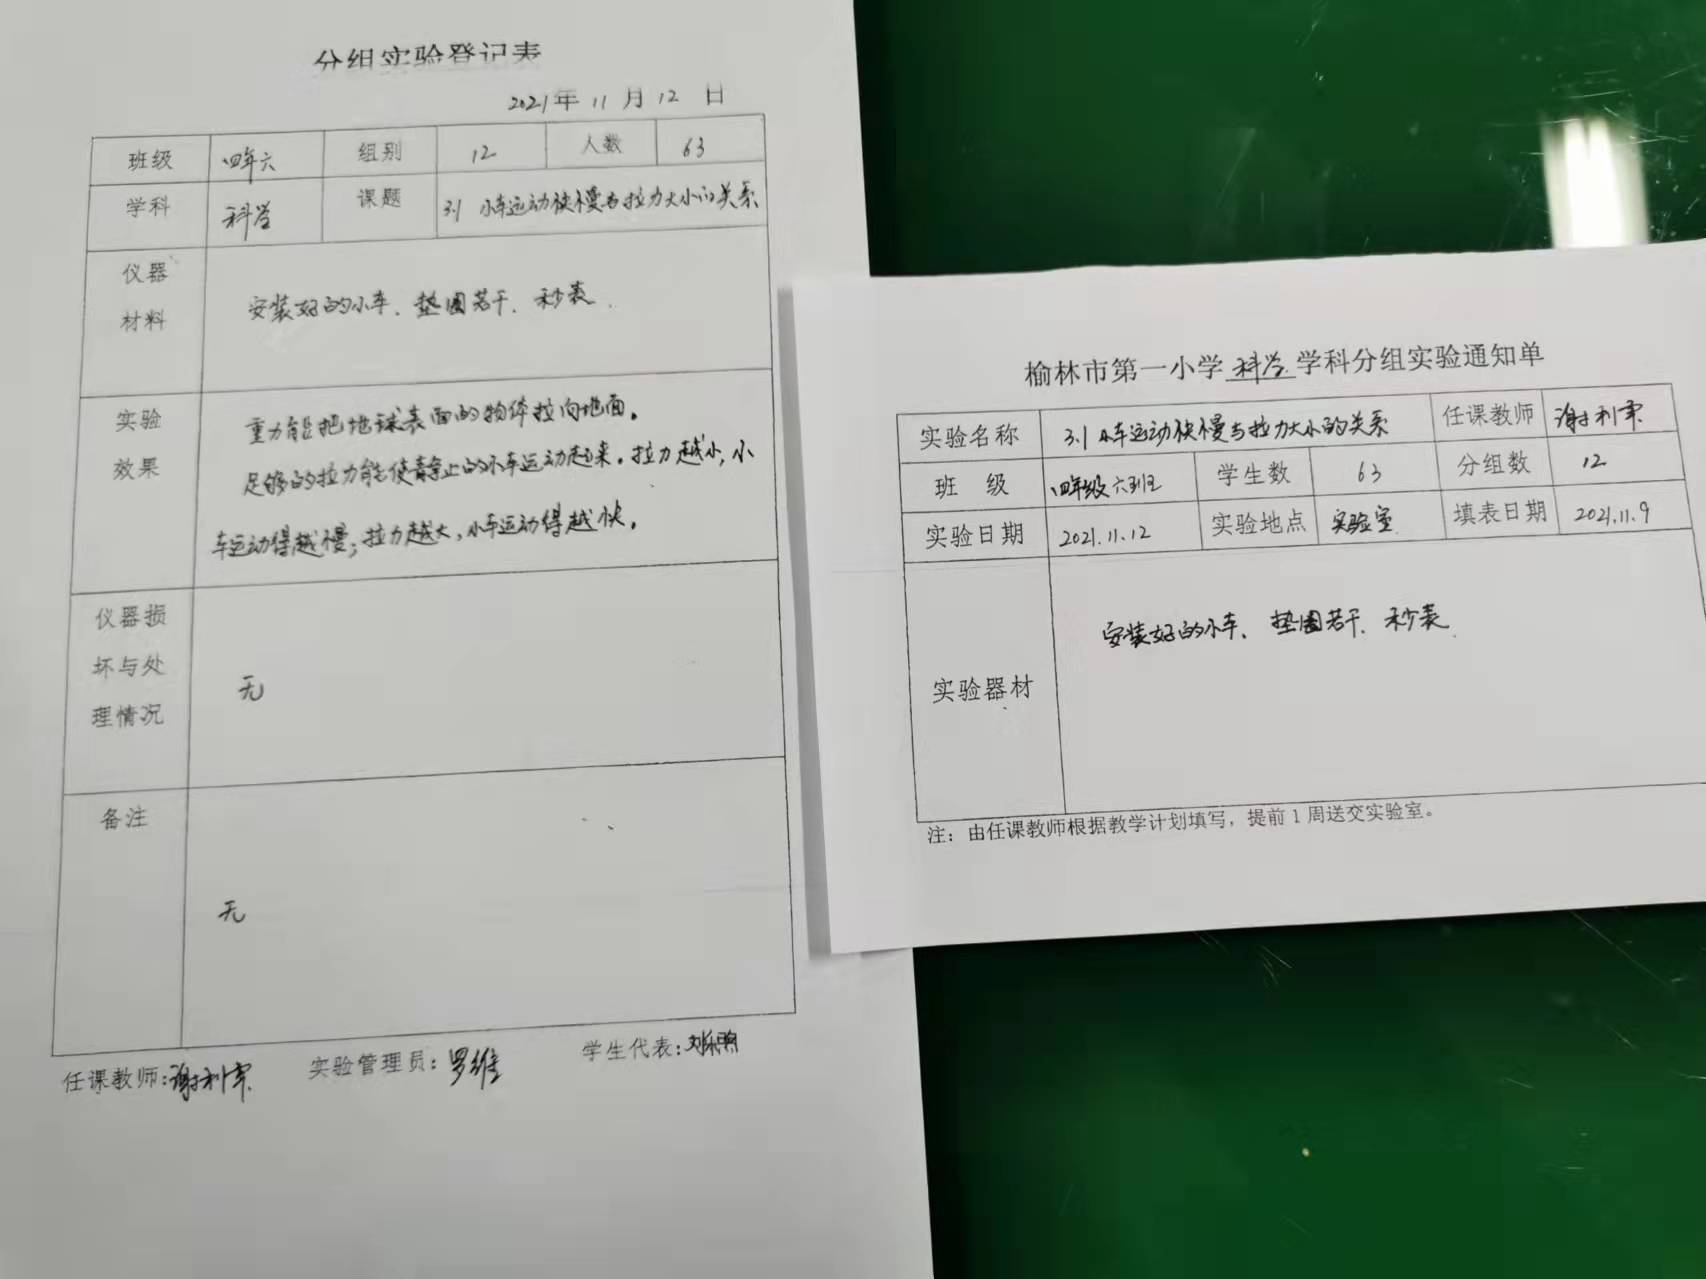 分组实验登记表
2021年 11 月 12 日
班级 四年六 组别 12 人数 63
学科 科学 课题 3.1 小车运动快慢与拉力大小的关系
仪器
材料
安装好的小车、垫圈若干、秒表.
实验
效果
重力能把地球表面的物体拉向地面。
足够的拉力能使静止的小车运动起来。拉力越小,小
车运动得越慢;拉力越大,小车运动得越快。
仪器损
坏与处
理情况
无
备注
无
任课教师: 实验管理员:罗维 学生代表:
榆林市第一小学 科学 学科分组实验通知单
实验名称 3.1 小车运动快慢与拉力大小的关系 任课教师
班 级 四年级六班 学生数 63 分组数 12
实验日期 2021.11.12 实验地点 实验室 填表日期 2021.11.9
实验器材 安装好的小车、垫圈若干、秒表.
注：由任课教师根据教学计划填写，提前1周送交实验室。